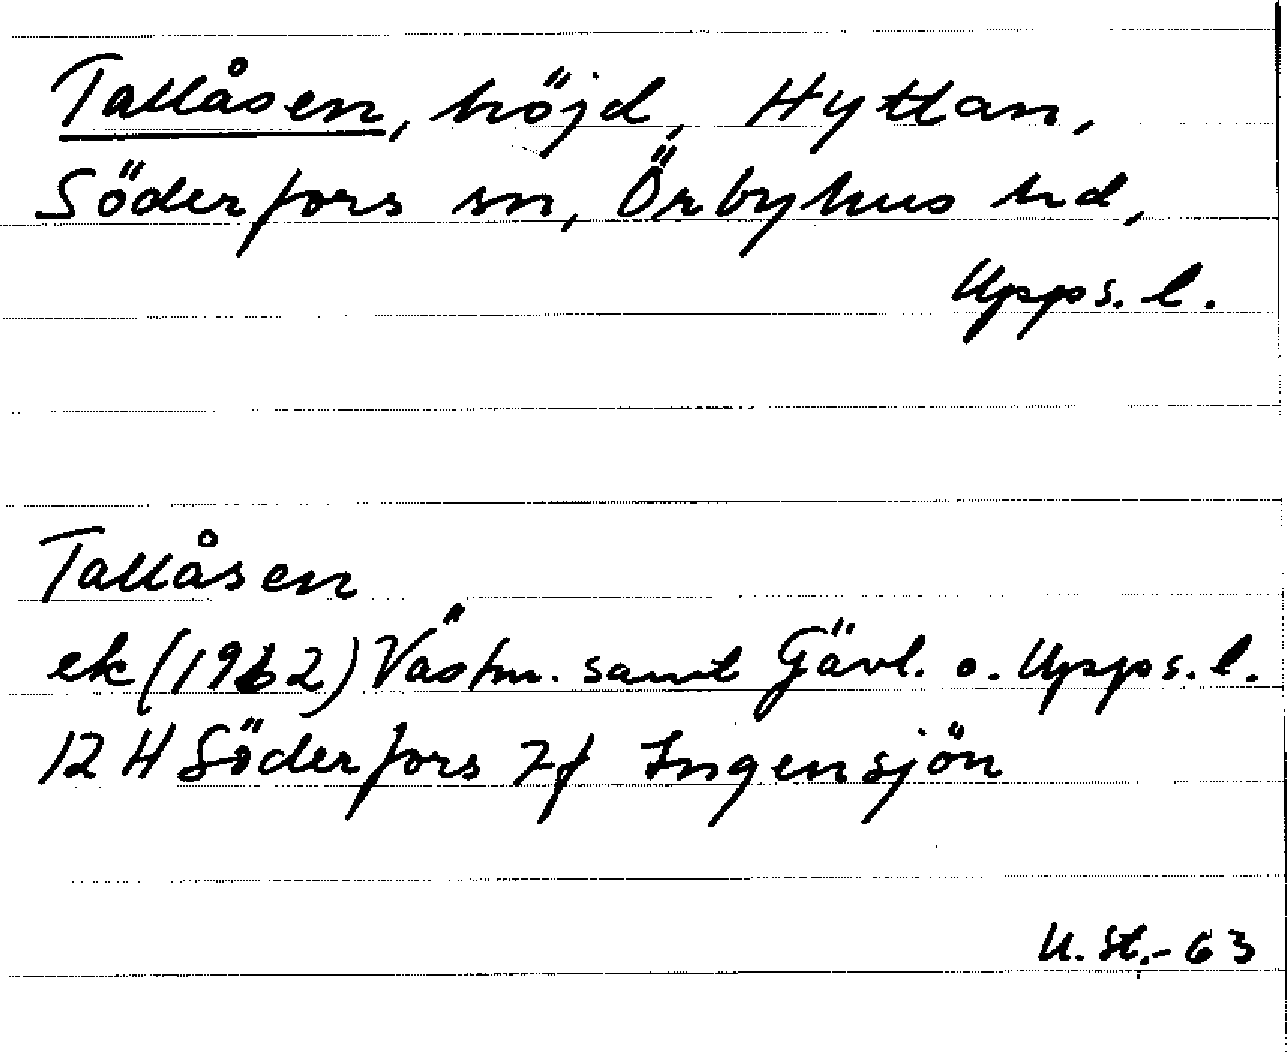 Tallåsen, höjd, Hyttan,
Söderfors sn, Örbyhus hd,
Upps. l.
Tallåsen
ek (1962) Västm. samt Gävl. o. Upps. l.
12 H Söderfors 7f Ingensjön
U. St.-63